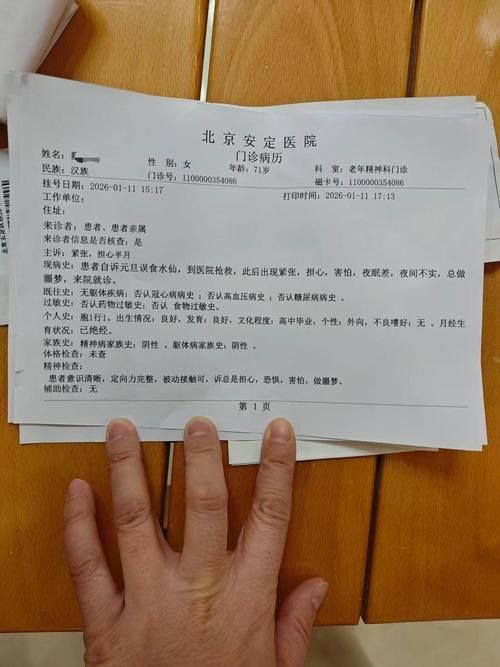 北京安定医院
门诊病历
姓名：
性 别：女
年龄：71岁
科 室：老年精神科门诊
民族：汉族
门诊号：1100000354086
磁卡号：1100000354086
挂号日期：2026-01-11 15:17
打印时间：2026-01-11 17:13
工作单位：
住址：
来诊者：患者、患者亲属
来诊者信息是否核查：是
主诉：紧张，担心半月
现病史：患者自诉元旦误食水仙，到医院抢救，此后出现紧张，担心，害怕，夜眠差，夜间不实，总做
噩梦，来院就诊。
既往史：无躯体疾病；否认冠心病病史 ；否认高血压病史 ；否认糖尿病病史 。
过敏史：否认药物过敏史；否认 食物过敏史。
个人史：胞1行1，出生情况：良好，发育：良好，文化程度：高中毕业，个性：外向，不良嗜好：无 。月经生
育状况：已绝经。
家族史：精神病家族史：阴性 。躯体病家族史：阴性 。
体格检查：未查
精神检查：
患者意识清晰，定向力完整，被动接触可，诉总是担心，恐惧，害怕，做噩梦。
辅助检查：无
第 1 页